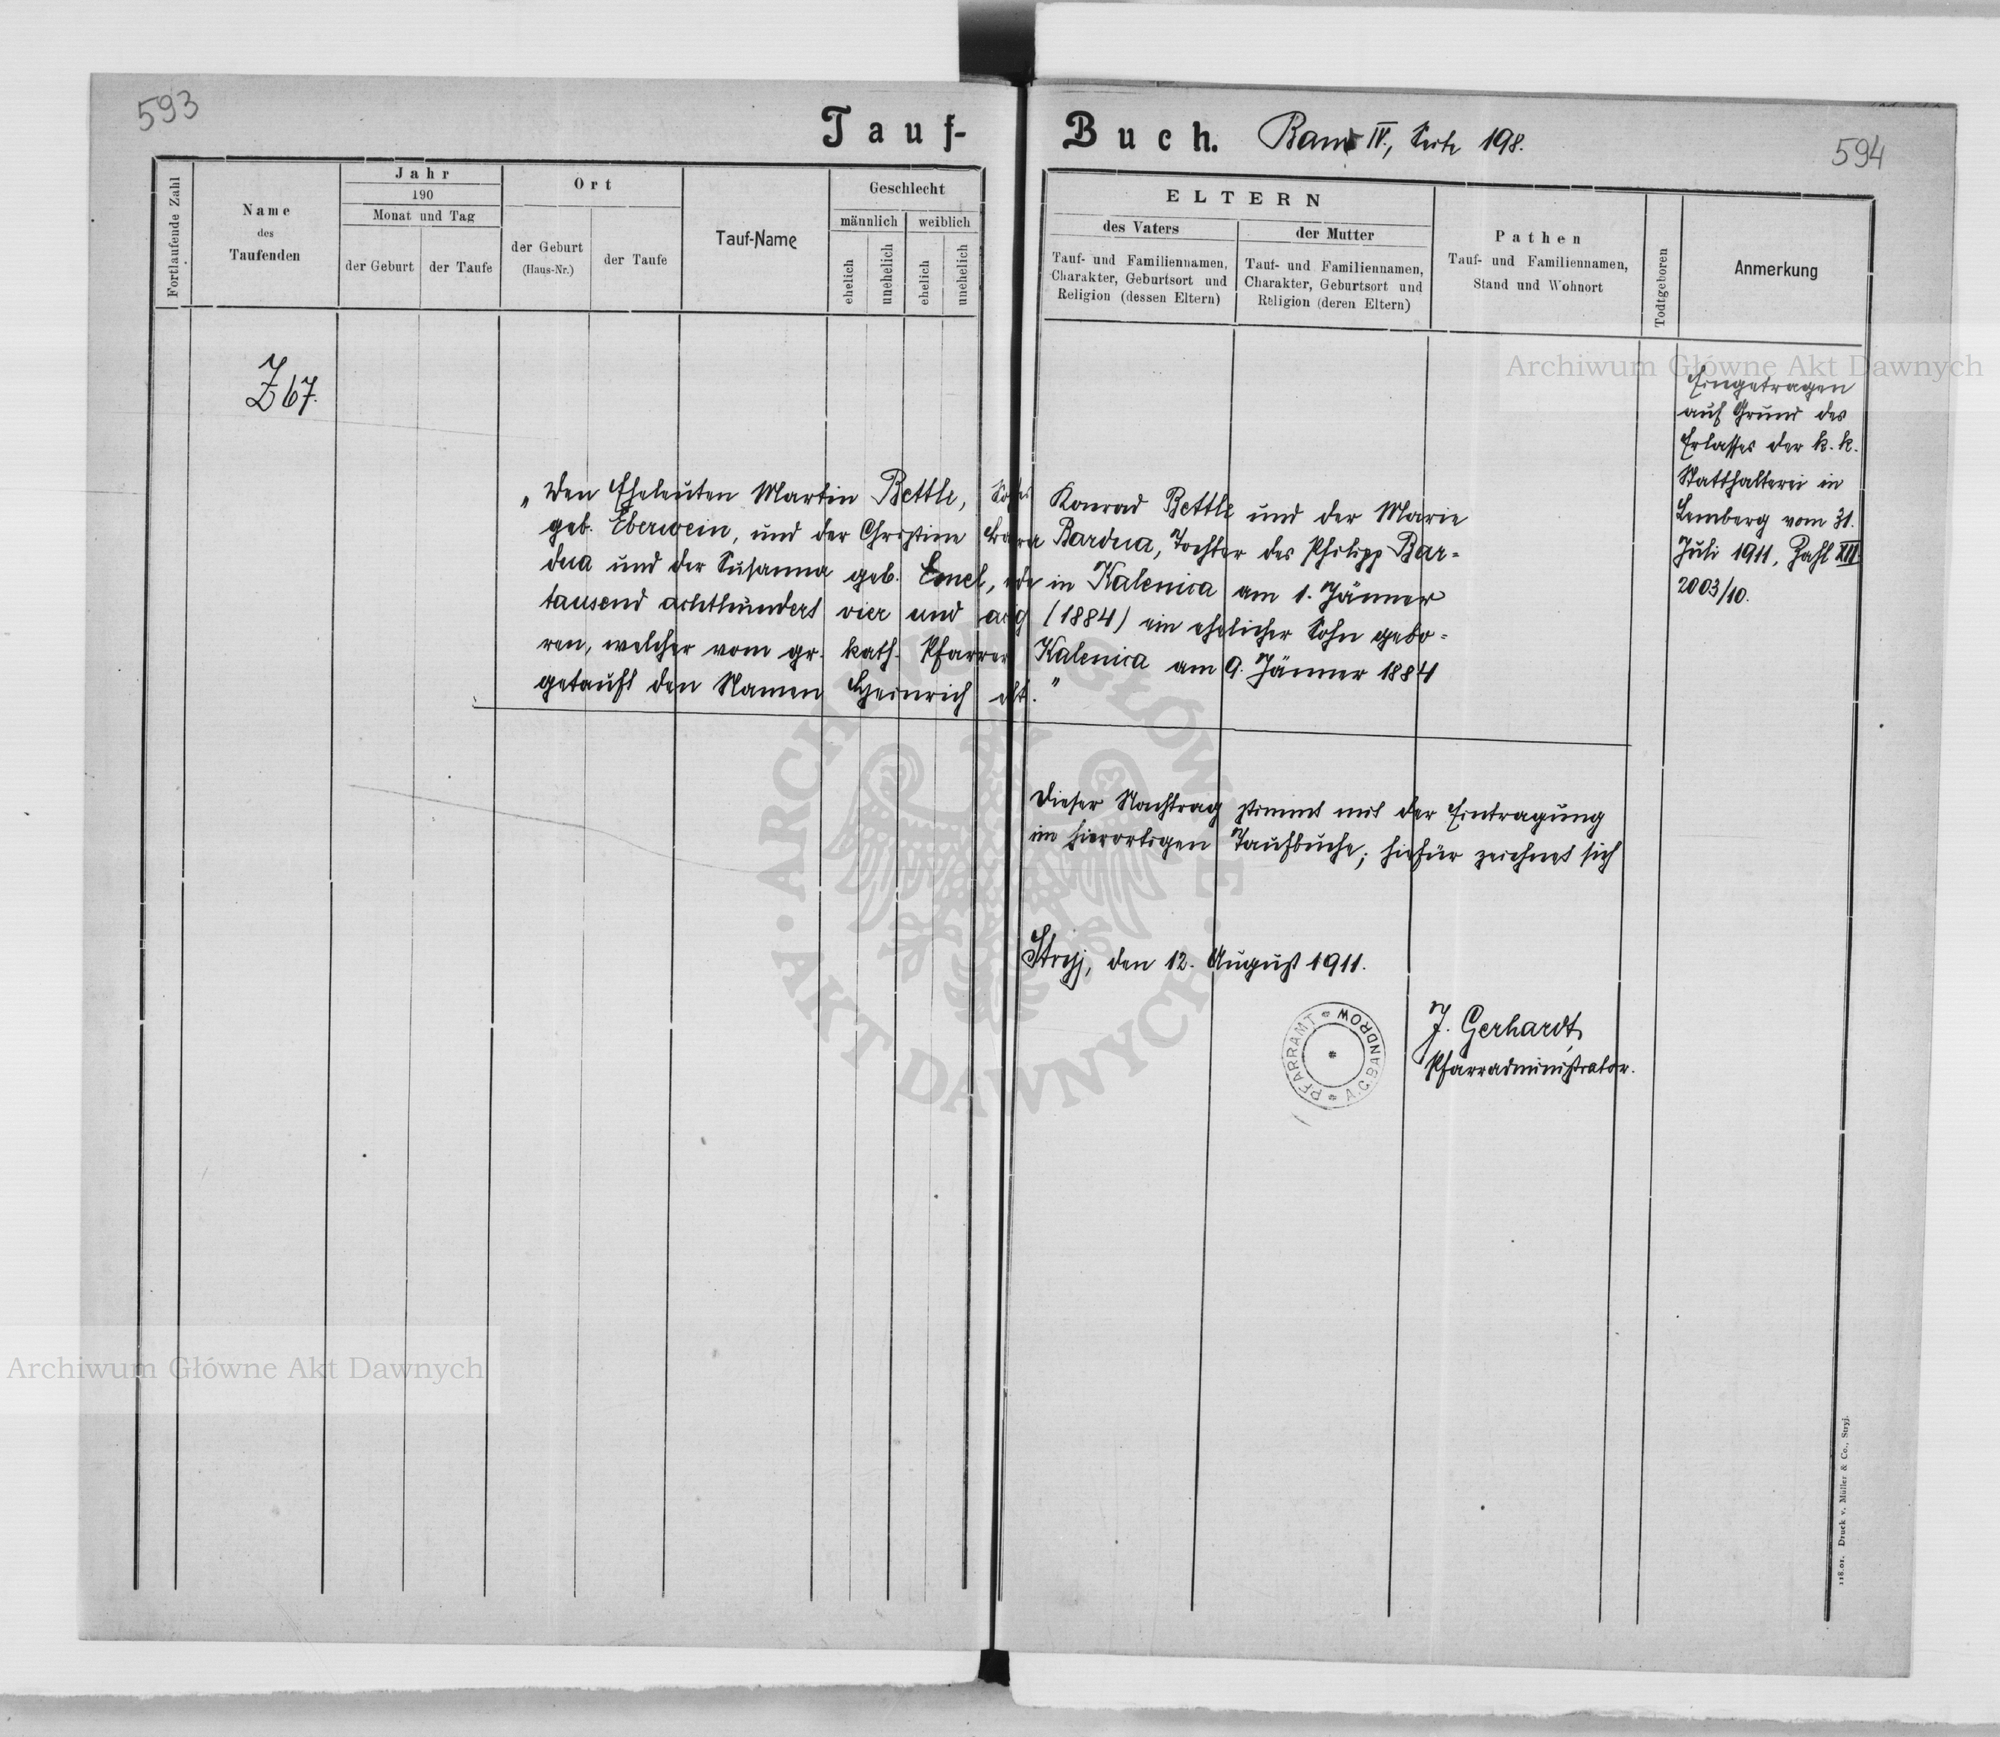 593
Tauf-
Fortlaufende Zahl
Name
des
Taufenden
Jahr
190
Monat und Tag
der Geburt
der Taufe
Ort
der Geburt
(Haus-Nr.)
der Taufe
Tauf-Name
Geschlecht
männlich
weiblich
ehelich
unehelich
ehelich
unehelich
Buch. Band IV., Seite 198.
594
ELTERN
des Vaters
Tauf- und Familiennamen,
Charakter, Geburtsort und
Religion (dessen Eltern)
der Mutter
Tauf- und Familiennamen,
Charakter, Geburtsort und
Religion (deren Eltern)
Pathen
Tauf- und Familiennamen,
Stand und Wohnort
Todtgeboren
Anmerkung
Z 67.
"Den Eheleuten Martin Bettle, Konrad Bettle und der Marie
geb. Eberwein, und der Christine Bardua, Tochter des Philipp Bar-
dua und der Susanna geb. in Kalenica am 1. Jänner
tausend achthundert vier und (1884) ein ehelicher Sohn gebo-
ren, welcher vom gr. kath. Pfarrer Kalenica am 9. Jänner 1884
getauft den Namen Heinrich "
Eingetragen
auf Grund des
Erlasses der k. k.
Statthalterei in
Lemberg vom 31.
Juli 1911, Zahl XIII
2003/10.
Dieser Nachtrag stimmt mit der Eintragung
im hierortigen Taufbuche; hiefür zeichnet sich
Stryj, den 12. August 1911.
PFARRAMT * A.C. BANDROW *
J. Gerhardt,
Pfarradministrator.
118.01. Druck v. Müller & Co., Stryj.
Archiwum Główne Akt Dawnych
Archiwum Główne Akt Dawnych
ARCHIWUM GŁÓWNE · AKT DAWNYCH ·